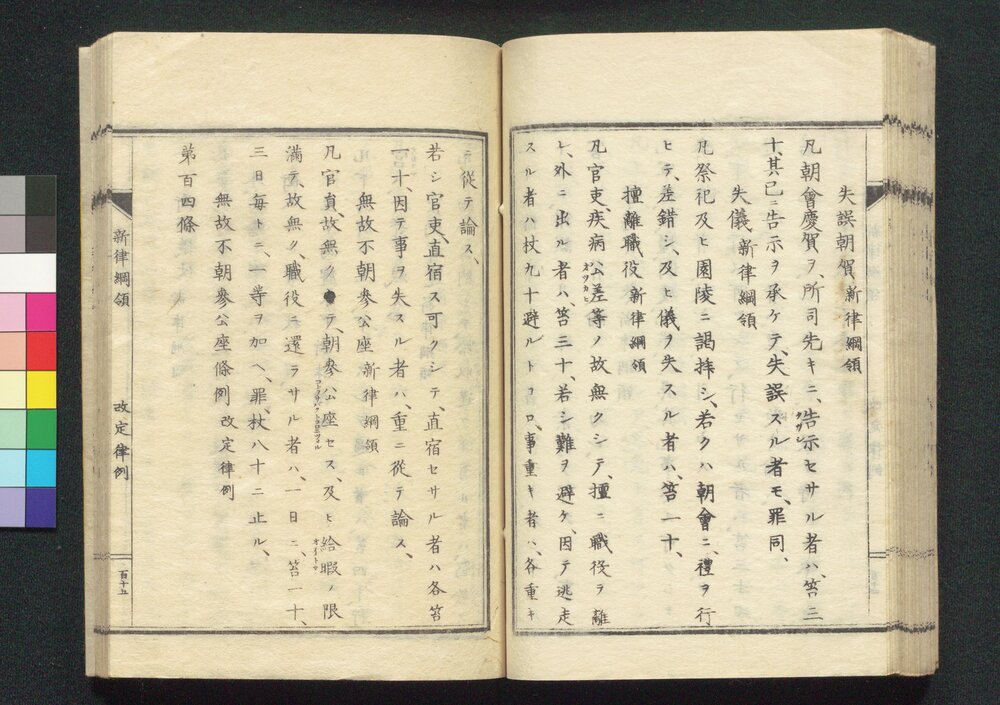 失誤朝賀 新律綱領
凡朝會慶賀ヲ、所司先キニ、告示セサル者ハ、笞三
十、其已ニ告示ヲ承ケテ、失誤スル者モ、罪同、
失儀 新律綱領
凡祭祀及ヒ園陵ニ謁拝シ、若クハ朝會ニ、禮ヲ行
ヒテ、差錯シ、及ヒ儀ヲ失スル者ハ、笞一十、
擅離職役 新律綱領
凡官吏疾病公差等ノ故無クシテ、擅ニ職役ヲ離
レ、外ニ出ル者ハ、笞三十、若シ難ヲ避ケ、因テ逃走
スル者ハ杖九十避ルトコロ、事重キ者ハ、各重キ
ニ從テ論ス、
若シ官吏、直宿ス可クシテ、直宿セサル者ハ各笞
一十、因テ事ヲ失スル者ハ、重ニ從テ論ス、
無故不朝參公座 新律綱領
凡官員、故無クテ、朝參公座セス、及ヒ給暇ノ限
滿テ、故無ク、職役ニ還ラサル者ハ、一日ニ、笞一十、
三日每トニ、一等ヲ加ヘ、罪、杖八十ニ止ル、
無故不朝參公座條例 改定律例
第百四條
新律綱領
改定律例
百十五